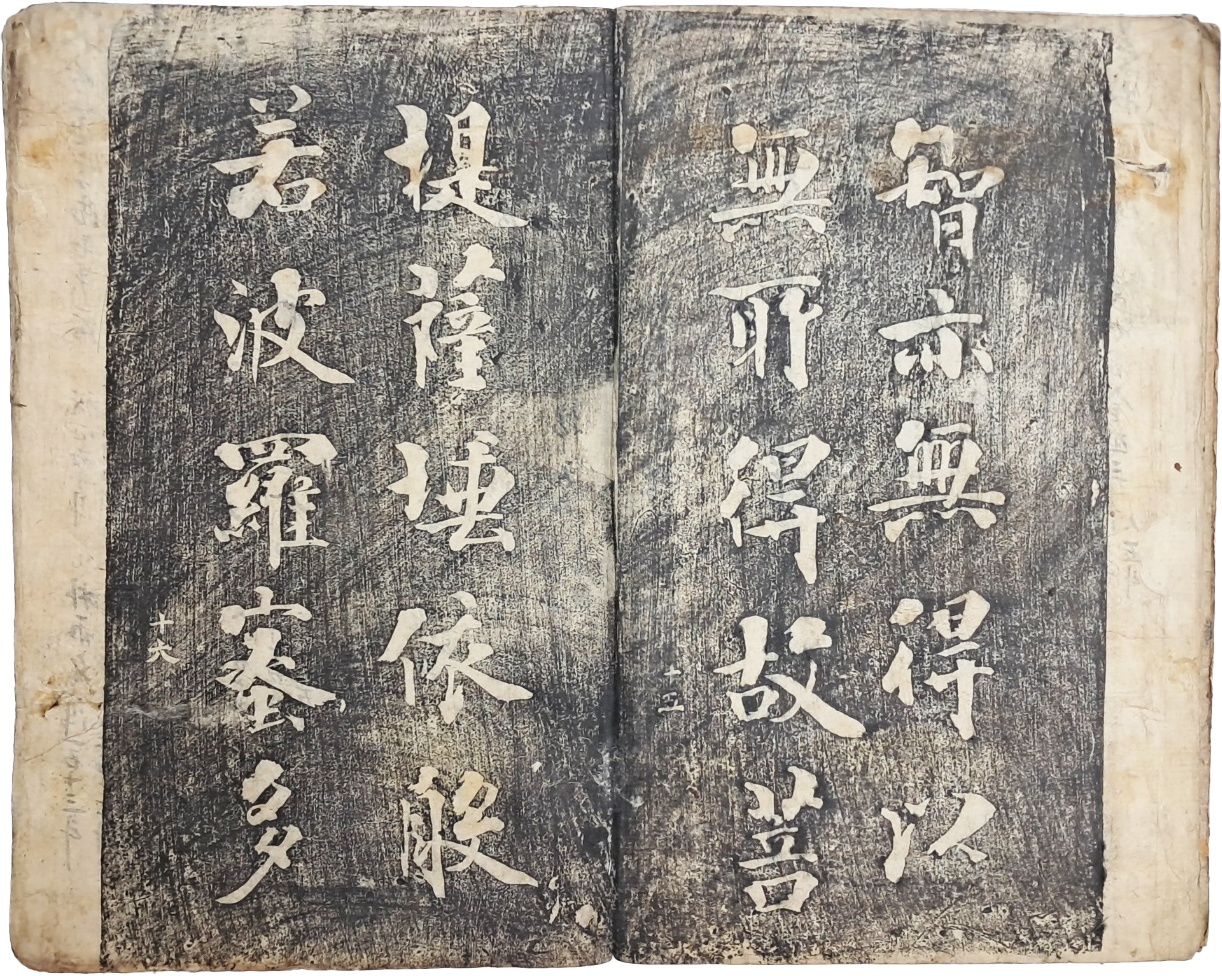 智亦無得以
無所得故菩
十五
提薩埵依般
若波羅蜜多
十六